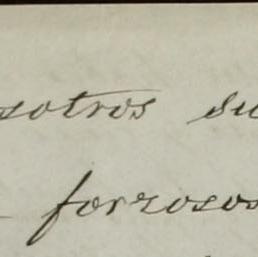 sotros su
forzosos